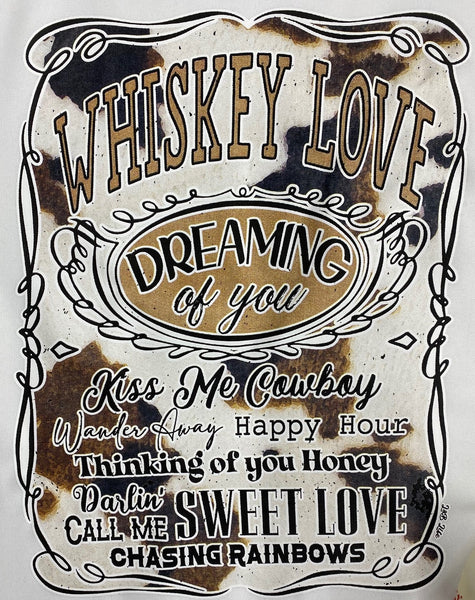 WHISKEY LOVE
DREAMING
of you
Kiss Me Cowboy
Wander Away Happy Hour
Thinking of you Honey
Darlin'
CALL ME SWEET LOVE
CHASING RAINBOWS